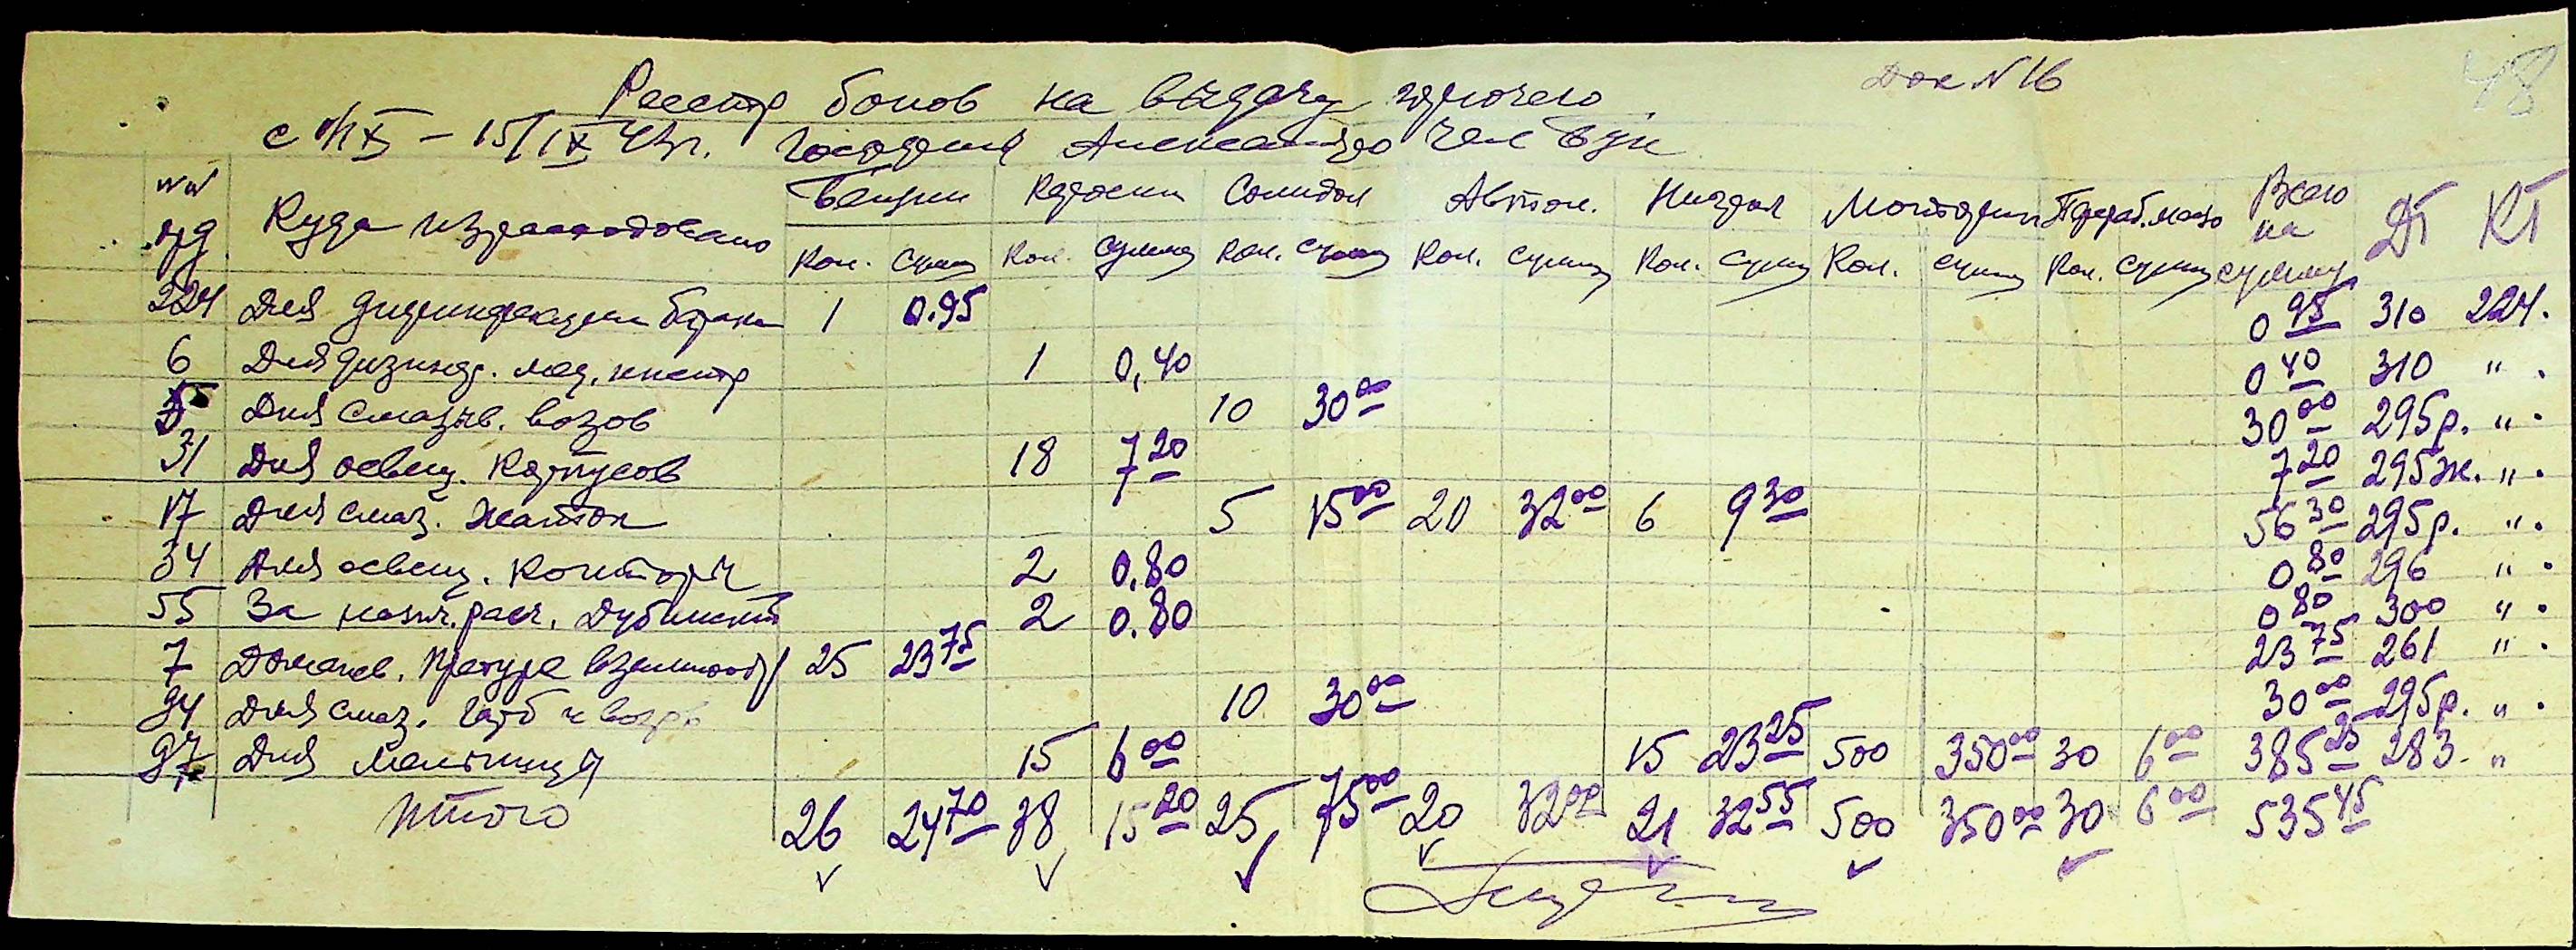 Реестр бонов на выдачу горючего Док N 16 48
с 1/IX – 15/IX 43г.
NN орд Куда израсходовано Бензин Керосин Солидол Автол. Нигрол Перераб. масло Всего на сумму Дт Кт
Кол. Сумма Кол. Сумма Кол. Сумма Кол. Сумма Кол. Сумма Кол. Сумма Кол. Сумма
224 Для 1 0.95 0 95 310 224.
6 Для дизинф. мед. инстр 1 0,40 0 40 310 " .
5 Для смазыв. возов 10 30 00 30 00 295р. " .
31 Для освещ. Корпусов 18 7 20 7 20 295ж. " .
17 Для смаз. жаток 5 15 00 20 32 00 6 9 30 56 30 295р. " .
34 Для освещ. Конторы 2 0.80 0 80 296 " .
55 За 2 0.80 0 80 300 " .
7 25 23 75 23 75 261 " .
94 Для смаз. гарб и возов 10 30 00 30 00 295р. " .
97 Для 15 6 00 15 23 25 500 350 00 30 6 00 385 25 283. "
Итого 26 24 70 38 15 20 25 75 00 20 32 00 21 32 55 500 350 00 30 6 00 535 45